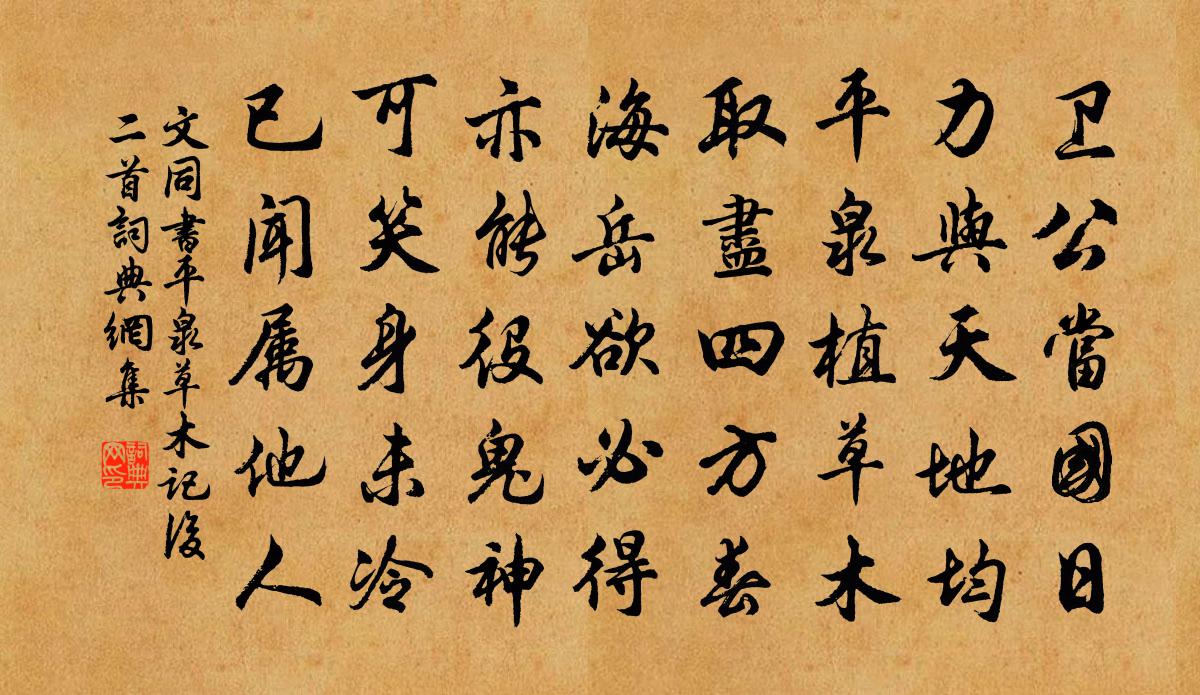 卫公當國日
力與天地均
平泉植草木
取盡四方春
海岳欲必得
亦能役鬼神
可笑身未冷
已闻属他人
文同書平泉草木記後
二首詞典網集
詞典
网印